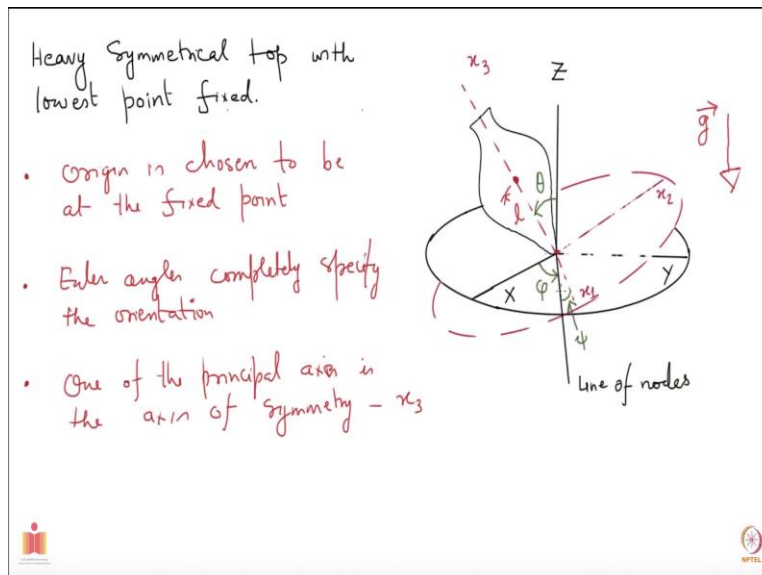 Heavy Symmetrical top with
lowest point fixed.
• Origin is chosen to be
at the fixed point
• Euler angles completely specify
the orientation
• One of the principal axis is
the axis of symmetry – x₃
x₃
Z
g
θ
l
x₂
X
φ
x₁
Y
ψ
Line of nodes
NPTEL